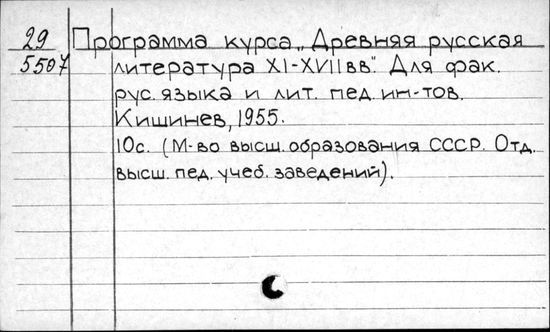 29
5507
Программа курса „Древняя русская
литература XI-XVII вв." Для фак.
рус. языка и лит. пед. ин-тов.
Кишинев, 1955.
10с. (М-во высш. образования СССР. Отд.
высш. пед. учеб. заведений).